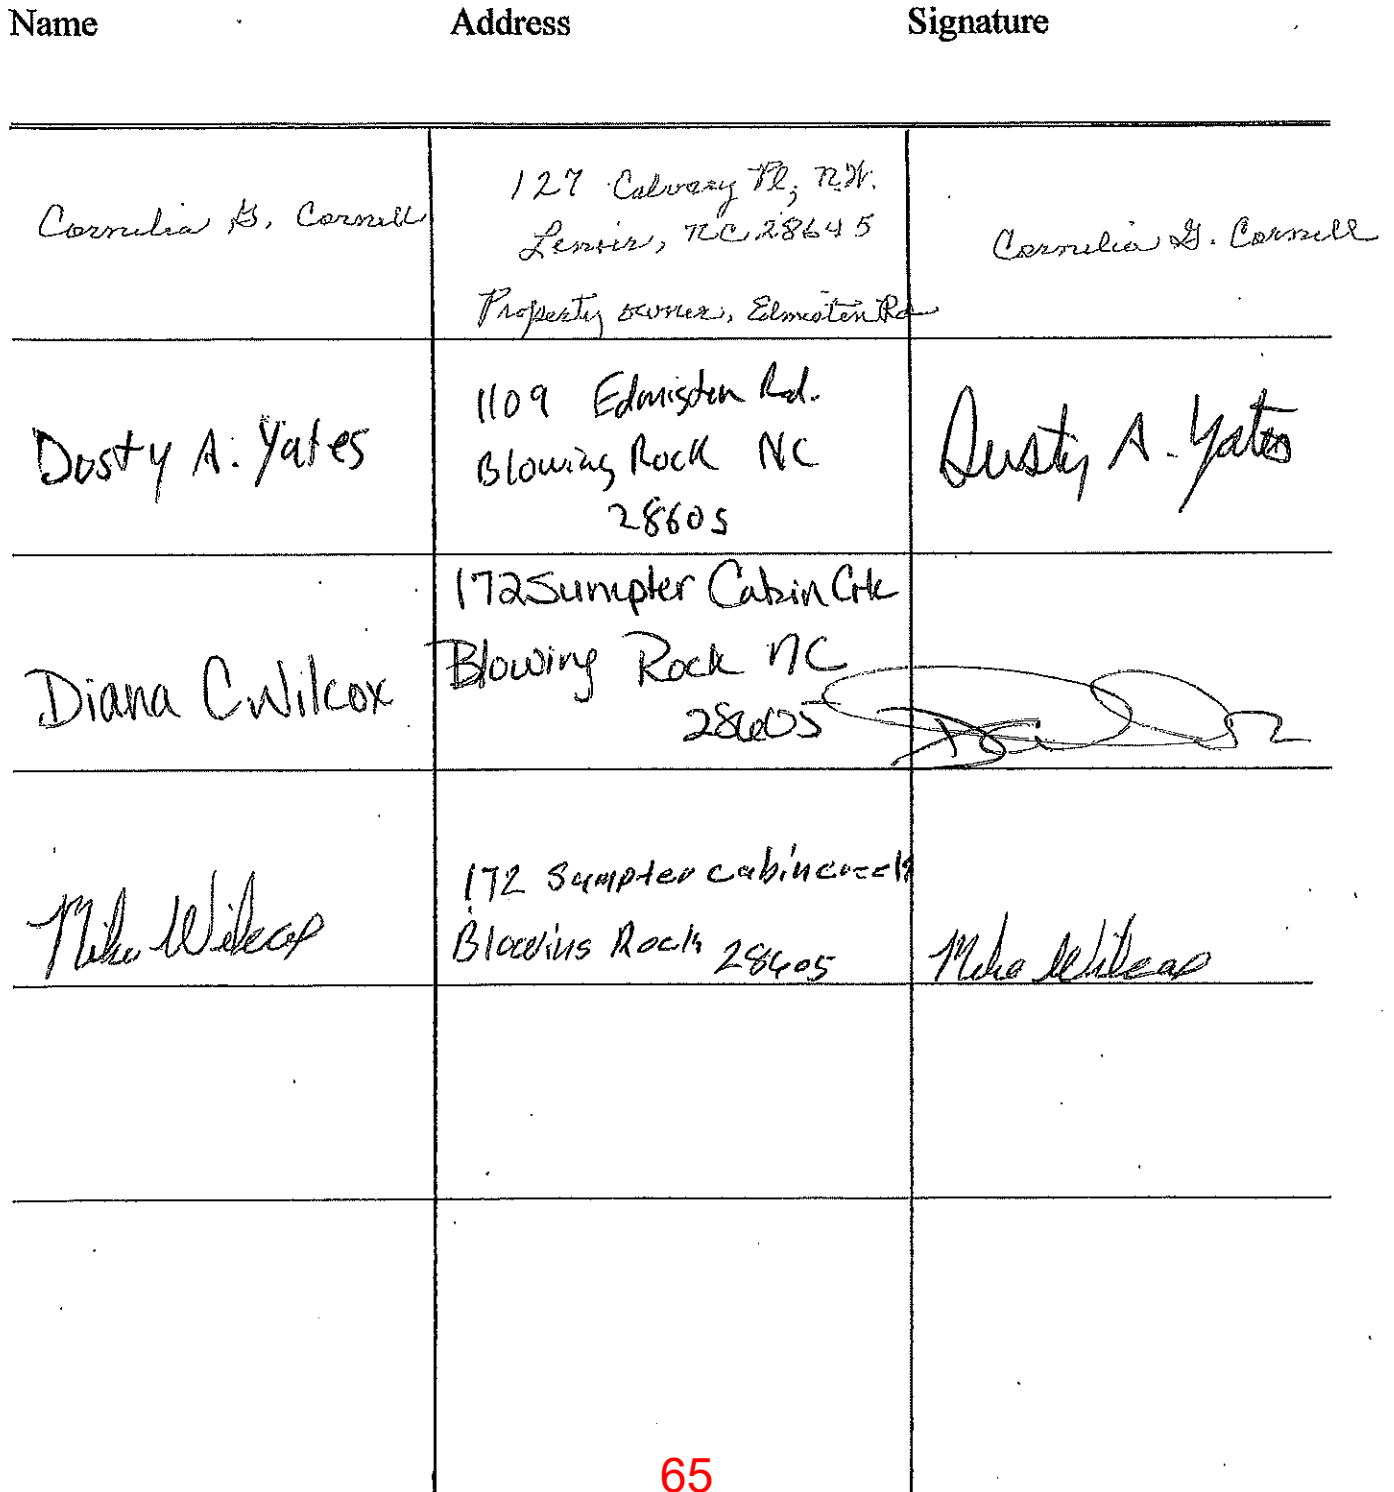 Name Address Signature
Cornelia G. Cornell
127 Calvary Pl, N.W.
Lenoir, NC 28645
Property owner, Edmisten Rd
Cornelia G. Cornell
Dusty A. Yates
1109 Edmisten Rd.
Blowing Rock NC
28605
Dusty A. Yates
Diana C Wilcox
172 Sumpter Cabin Crk
Blowing Rock NC
28605
Mike Wilcox
172 Sumpter cabin creek
Blowing Rock 28605
Mike Wilcox
65